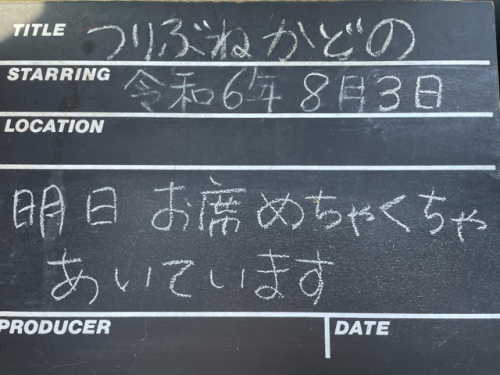 TITLE つりぶねかどの
STARRING 令和6年 8月3日
LOCATION
明日 お席めちゃくちゃ
あいています
PRODUCER DATE